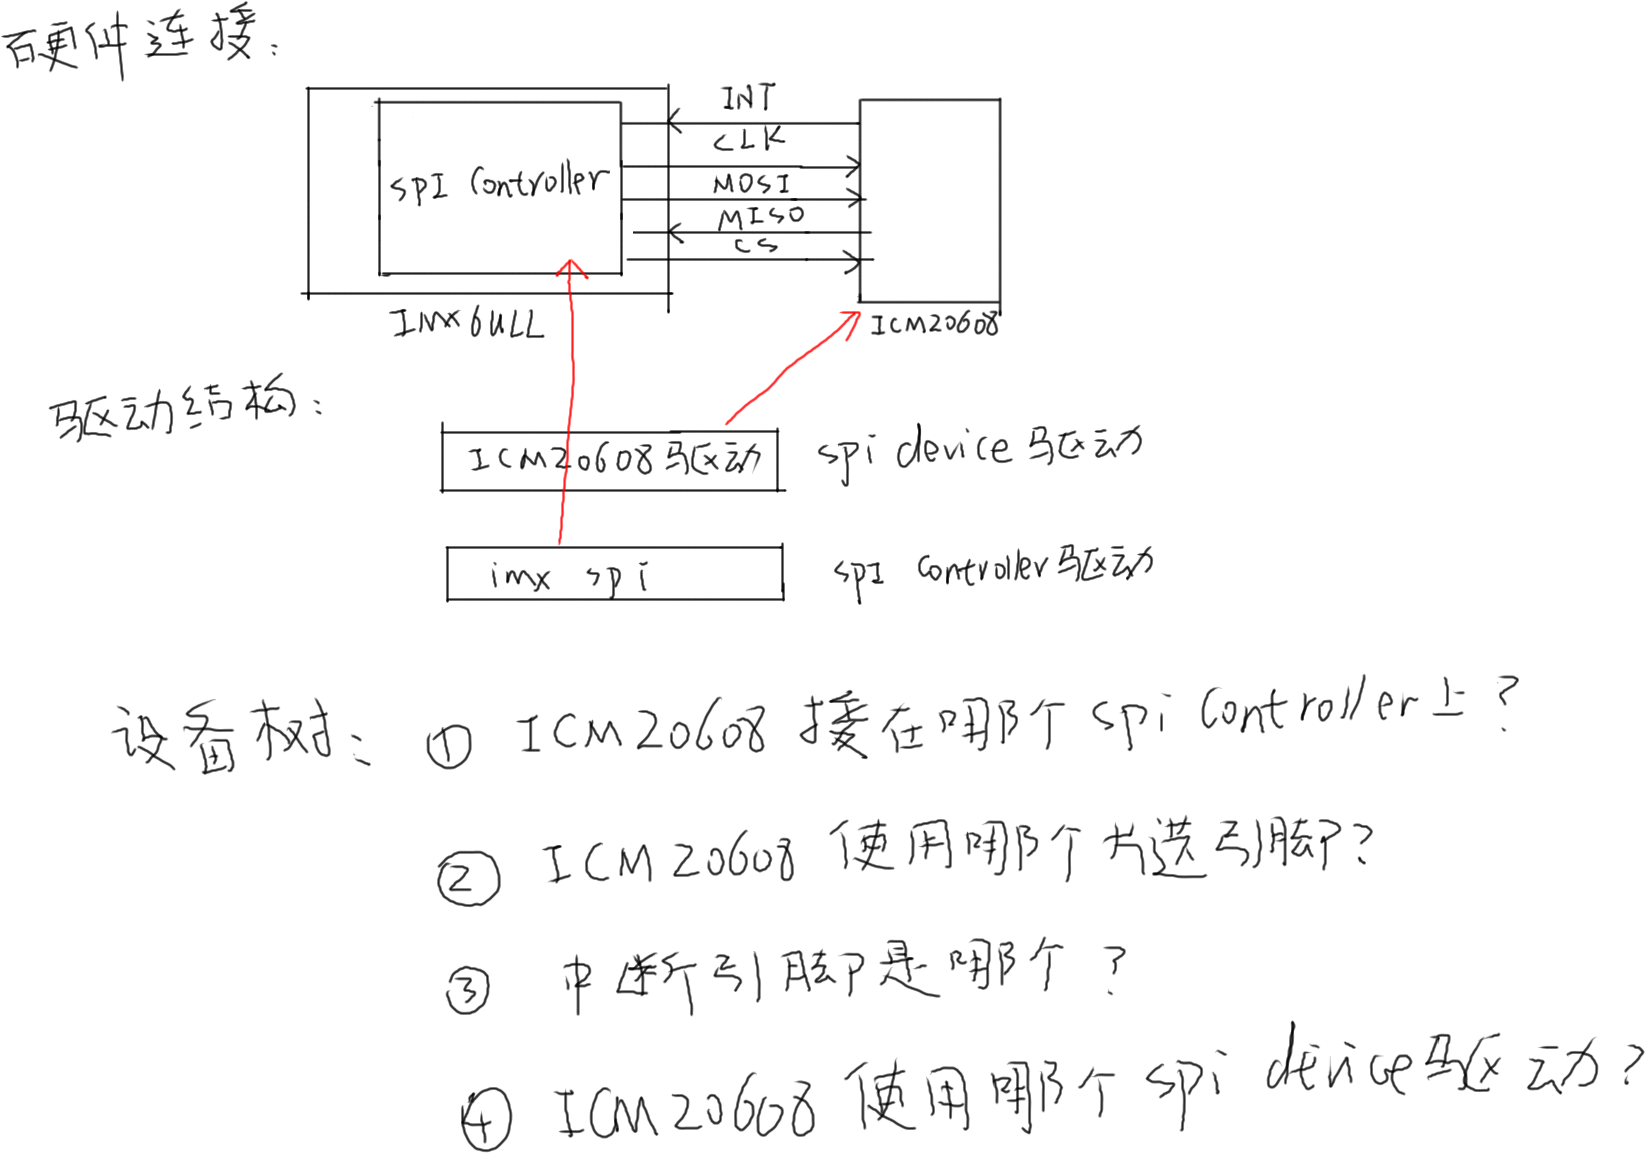 硬件连接：
INT
CLK
SPI Controller
MOSI
MISO
CS
IMX6ULL
ICM20608
驱动结构：
ICM20608驱动
spi device驱动
imx spi
SPI Controller驱动
设备树：① ICM20608 接在哪个 spi Controller上？
② ICM20608 使用哪个片选引脚？
③ 中断引脚是哪个？
④ ICM20608 使用哪个 spi device驱动？